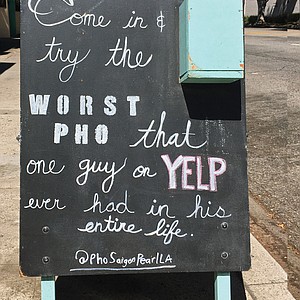 Come in &
try the
WORST
PHO that
one guy on YELP
ever had in his
entire life.
@PhoSaigonPearlLA